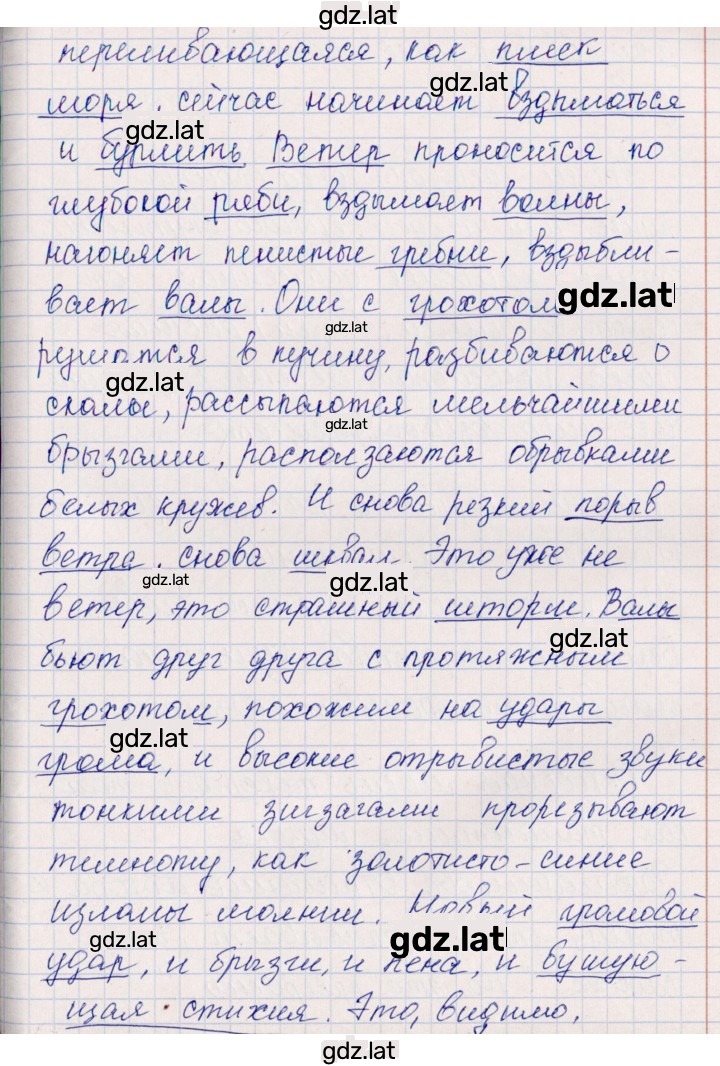 gdz.lat
переливающаяся, как плеск
gdz.lat
моря. сейчас начинает вздыматься
gdz.lat
и бурлить. Ветер проносится по
глубокой ряби, вздымает волны,
нагоняет пенистые гребни, вздыбли-
вает валы. Они с грохотом
gdz.lat
gdz.lat
рушатся в пучину, разбиваются о
gdz.lat
скалы, рассыпаются мельчайшими
gdz.lat
брызгами, расползаются обрывками
белых кружев. И снова резкий порыв
ветра. снова шквал. Это уже не
gdz.lat
gdz.lat
ветер, это страшный шторм. Валы
gdz.lat
бьют друг друга с протяжным
грохотом, похожим на удары
gdz.lat
грома, и высокие отрывистые звуки
тонкими зигзагами прорезывают
темноту, как золотисто-синие
изломы молнии. Новый громовой
gdz.lat
gdz.lat
удар, и брызги, и пена, и бушую-
щая стихия. Это, видимо,
gdz.lat